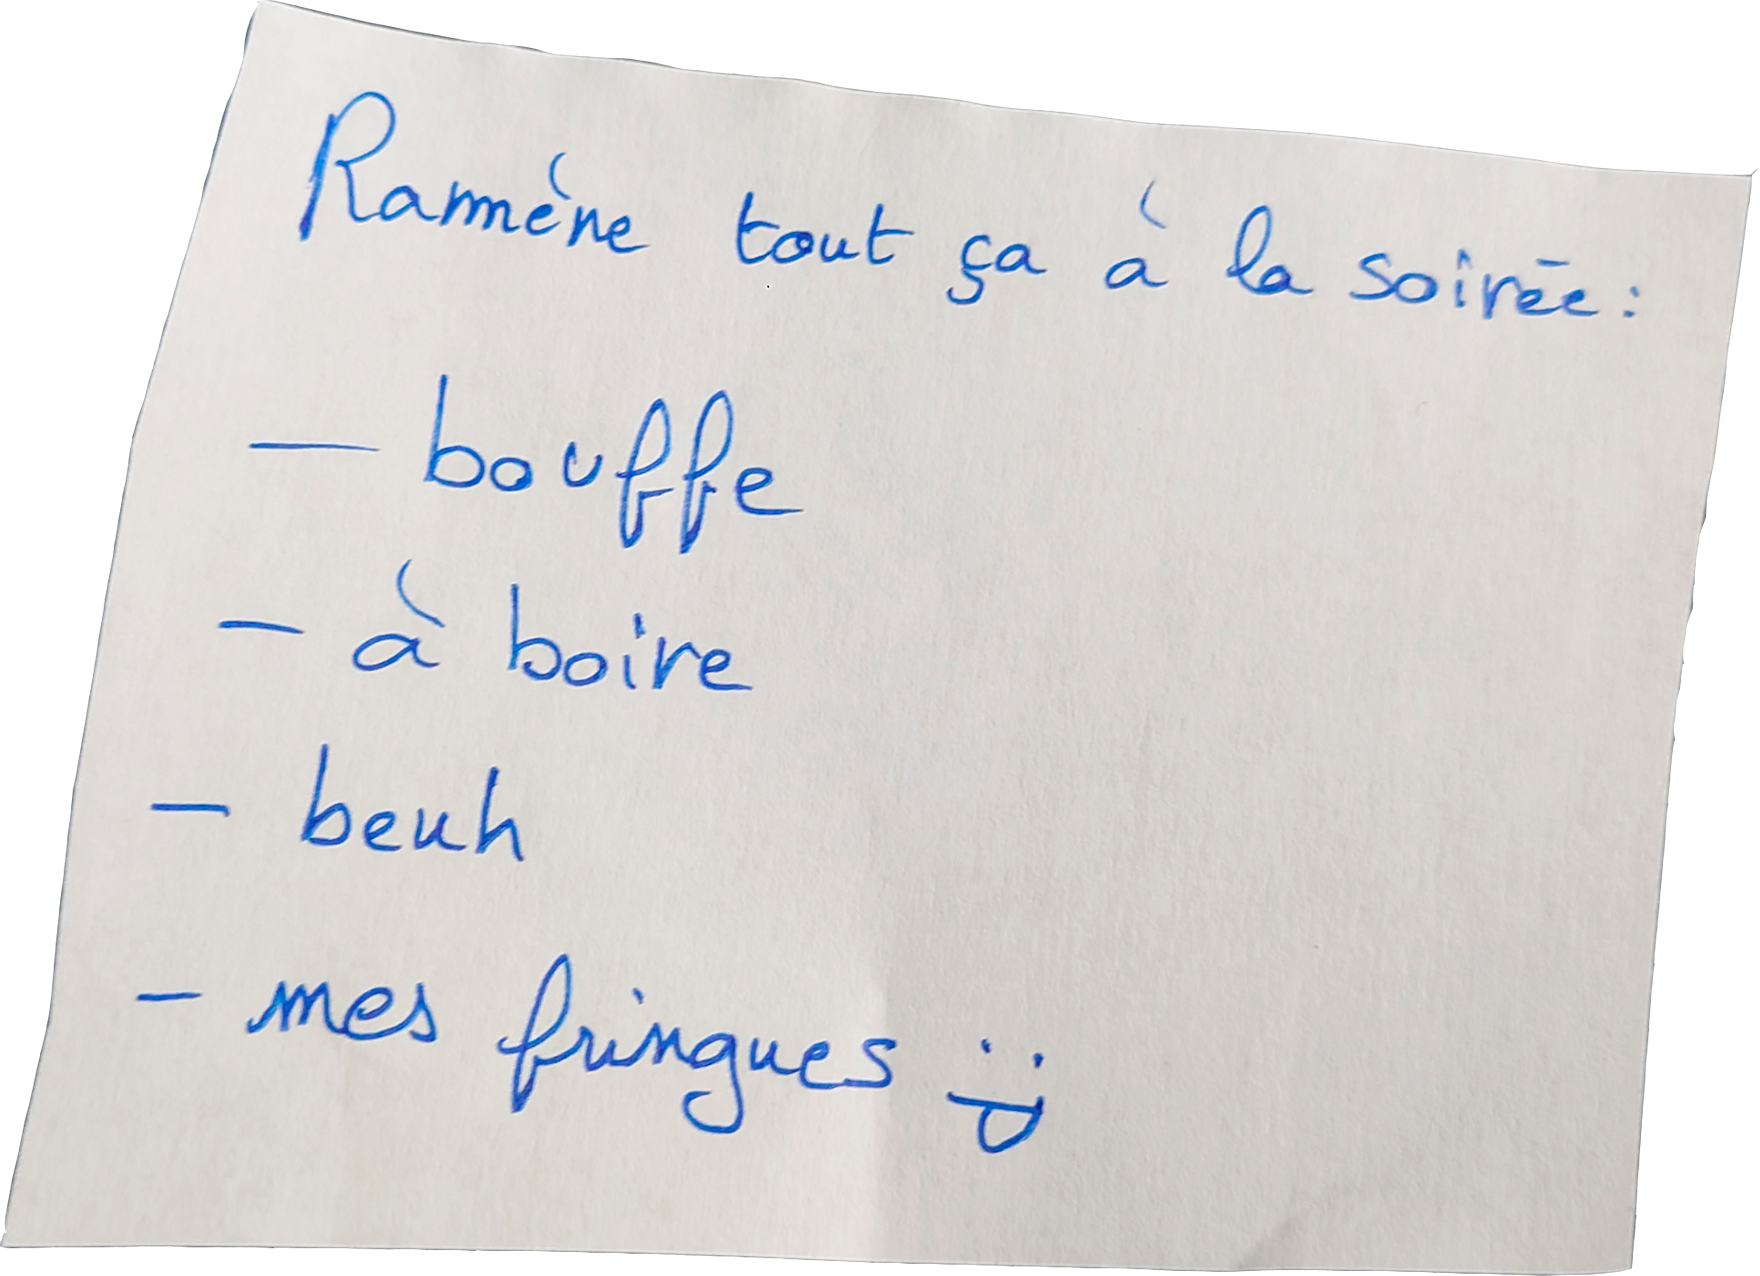 Ramène tout ça à la soirée :
- bouffe
- à boire
- beuh
- mes fringues :P